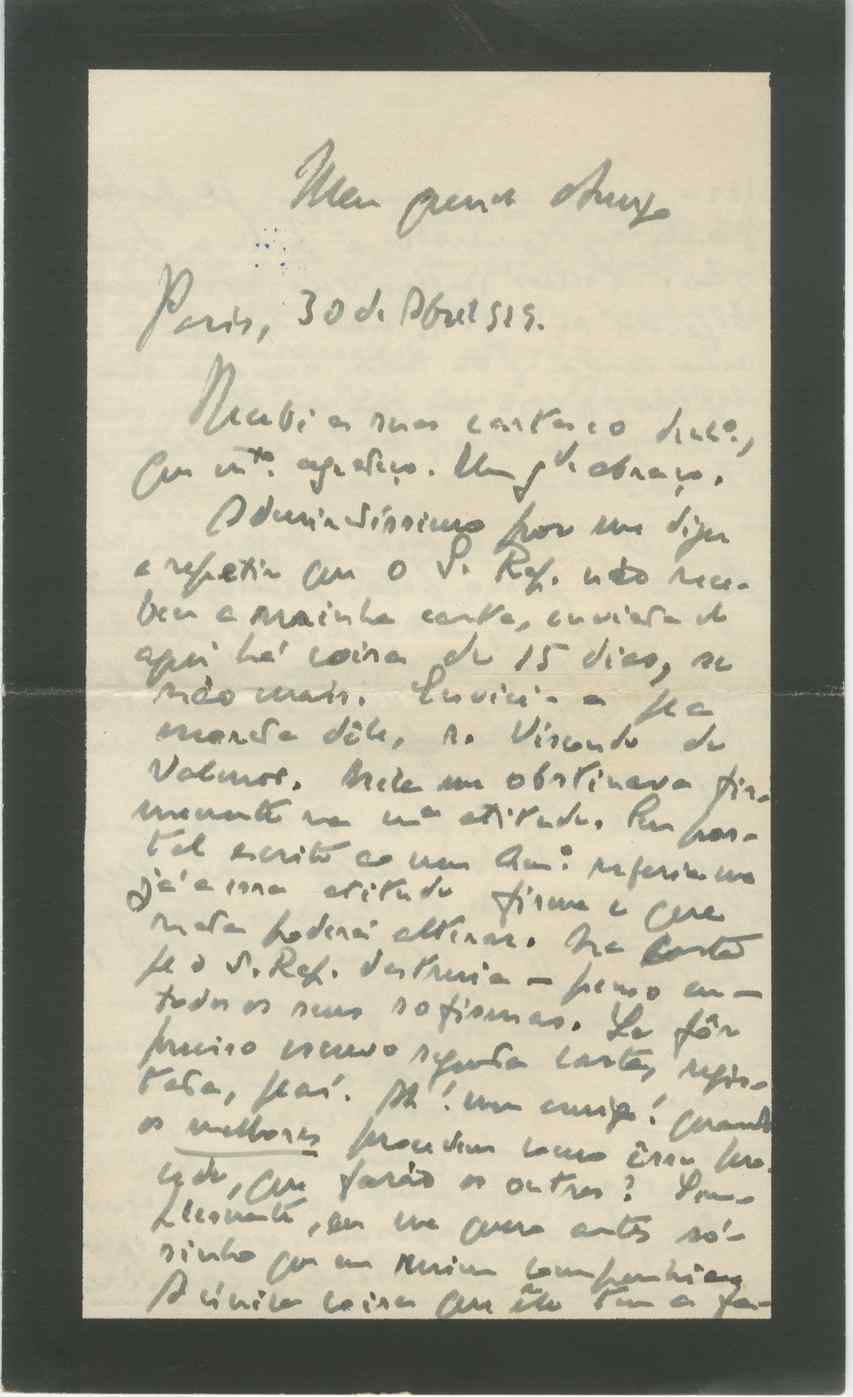 Meu grande Amigo
Paris, 30 de Abril 919.
Recebi as suas cartas e o dinhº.,
que mtº. agradeço. Um gde abraço.
Admiradíssimo por me dizer
e repetir que o S. Ref. não rece-
beu a minha carta, enviada de
aqui há coisa de 15 dias, se
não mais. Enviei-a pª a
morada dêle, r. Visconde de
Valmor. Nela me obstinava fir-
memente na mª atitude. Em pos-
tal escrito ao meu Amº referia-me
já a essa atitude firme e que
nada poderá alterar. Na carta
pª o S. Ref. destruia — penso eu —
todos os seus sofismas. Se fôr
preciso escrevo segunda carta, regis-
tada, pª aí. Ah! meu amigo! quando
os melhores procedem como êsse pro-
cede, que farão os outros? Sim-
plesmente, eu me quero antes só-
sinho que em ruim companhia.
A única coisa que êle tem a fa-